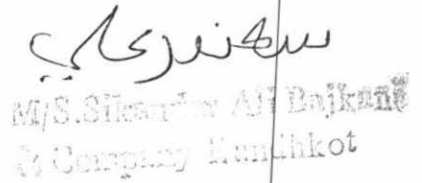 سڪندر علي
M/S.Sikandar Ali Bajkani
& Company Kundhkot